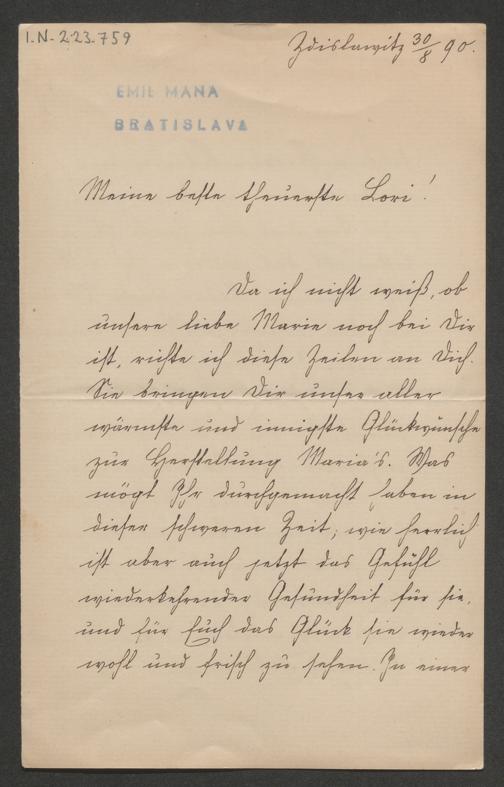 I.N-223.759
Zdislawitz 30/8 90.
EMIL MANA
BRATISLAVA
Meine beste theuerste Lori!
Da ich nicht weiß, ob
unsere liebe Marie noch bei Dir
ist, richte ich diese Zeilen an Dich.
Sie bringen Dir unser aller
wärmste und innigste Glückwünsche
zur Herstellung Maria's. Was
mögt Ihr durchgemacht haben in
dieser schweren Zeit; wie herrlich
ist aber auch jetzt das Gefühl
wiederkehrender Gesundheit für sie,
und für Euch das Glück sie wieder
wohl und frisch zu sehen. In einer